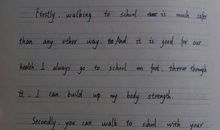 Firstly, walking to school is much safer
than any other way. And it is good for our
health. I always go to school on foot. through
it. I can build up my body strength.
Secondly, you can walk to school with your